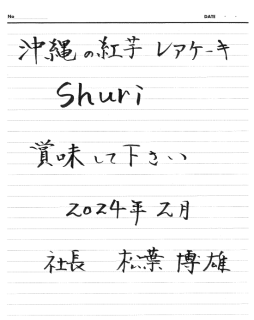 No.
DATE ・ ・
沖縄の紅芋レアケーキ
Shuri
賞味して下さい
2024年2月
社長 松葉博雄